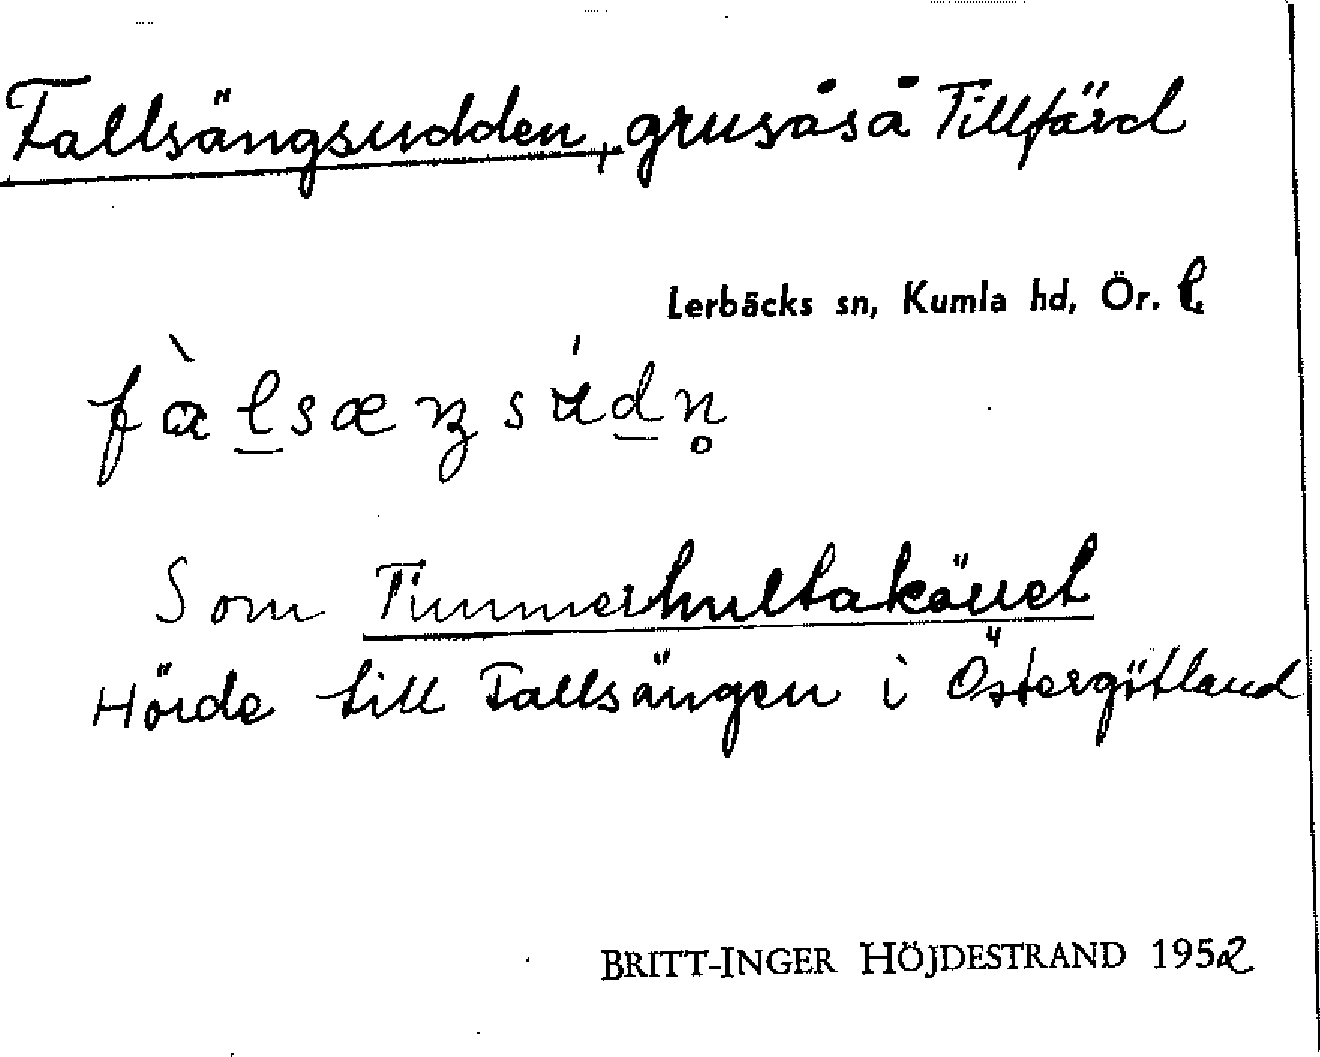 Fallsängsudden, grusås å Tillfärd
Lerbäcks sn, Kumla hd, Ör. l.
fàlsæŋsúdn̥
Som Timmerhultakärret
Hörde till Fallsängen i Östergötland
BRITT-INGER HÖJDESTRAND 1952